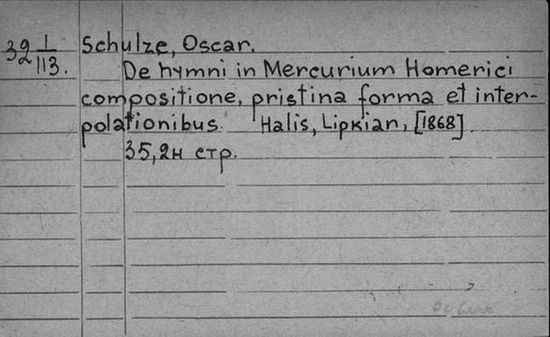 32 1/113. Schulze, Oscar.
De hymni in Mercurium Homerici
compositione, pristina forma et inter-
polationibus. Halis, Lipkian, [1868].
35, 2н стр.